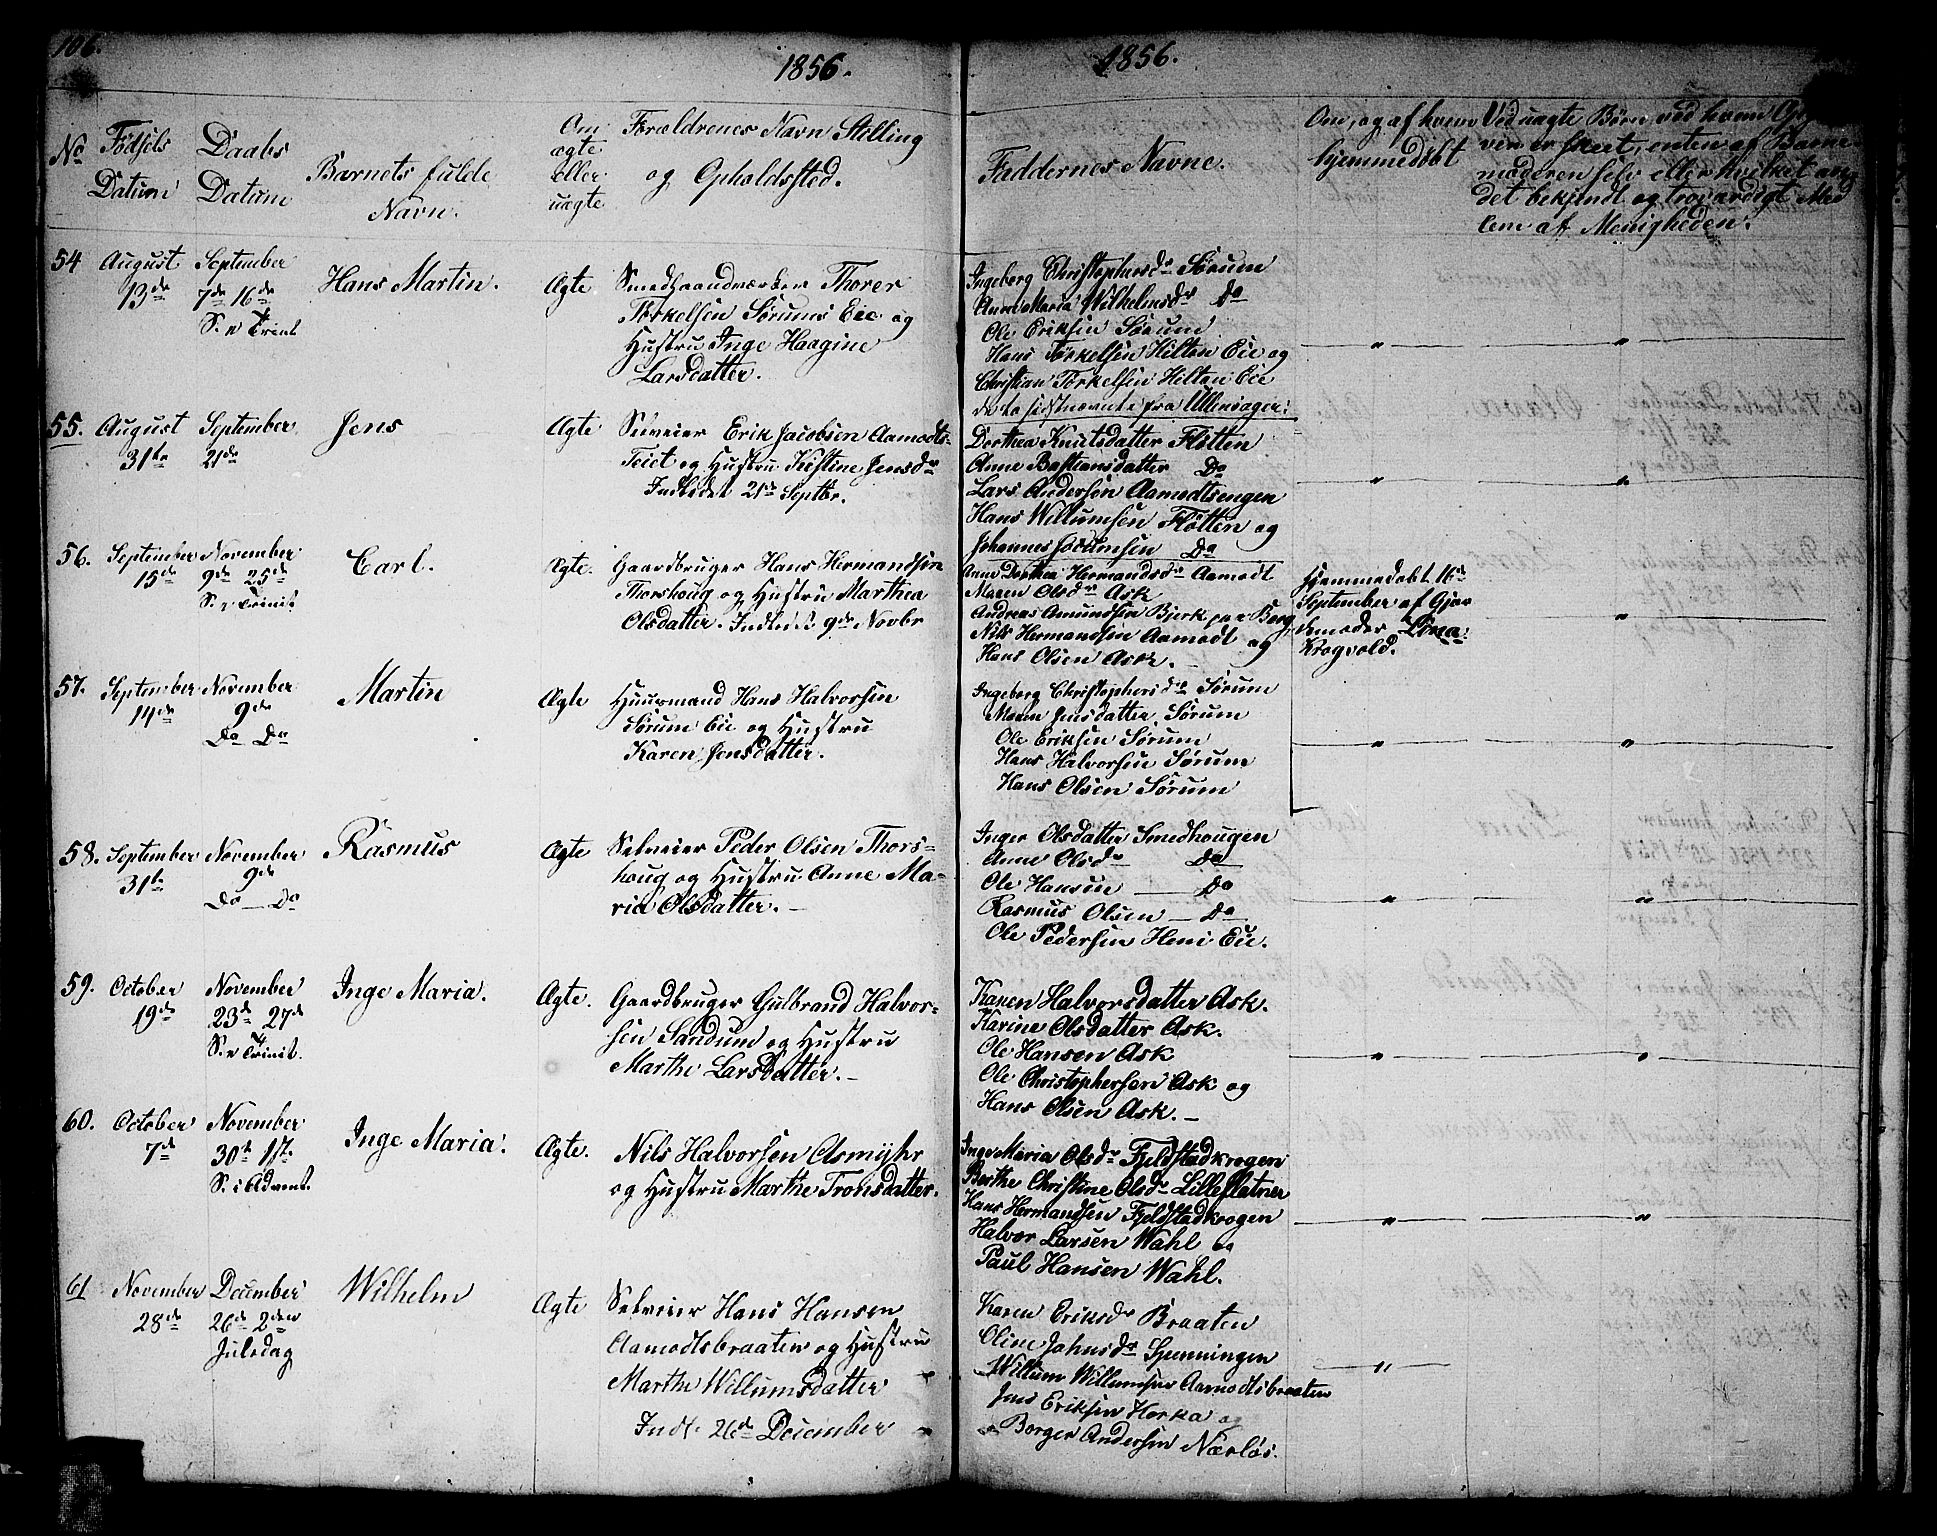 106.
1856.
No
Fødsels
Datum
Daabs
Datum
Barnets fulde
Navn.
Om
ægte
eller
uægte
Forældrenes Navn Stilling
og Opholdssted.
54 August
13de
September
7de 16de
S. e Trint
Hans Martin.
Ægte
Smedhaandværker Thorer
Torkelsen Sørums Eie og
Hustru Inge Haagine
Larsdatter.
55. August
31te
September
21de
Jens
Ægte
Selveier Erik Jacobsen Aamodts
Teiet og Hustru Kristine Jensdr
Indledet 21de Septbr.
56. September
15de
November
9de 25de
S. e Trinit
Carl.
Ægte.
Gaardbruger Hans Hermandsen
Thorshoug og Hustru Marthea
Olsdatter. Indledet 9de Novbr
57. September
14de
November
9de
Do Do
Martin
Ægte
Huusmand Hans Halvorsen
Sørum Eie og Hustru
Karen Jensdatter.
58. September
31te
November
9de
Do — Do
Rasmus
Ægte
Selveier Peder Olsen Thors=
houg og Hustru Anne Ma=
ria Olsdatter. —
59. October
19de
November
23de 27de
S. e Trinit.
Inge Maria.
Ægte.
Gaardbruger Gulbrand Halvor-
sen Sandum og Hustru
Marthe Larsdatter. —
60. October
7de
November
30te 1st.
S. i Advent.
Inge Maria.
Ægte.
Nils Halvorsen Asmyhr
og Hustru Marthe Tronsdatter.
61 November
28de
December
26de 2den
Juledag
Wilhelm
Ægte
Selveier Hans Hansen
Aamodtsbraaten og Hustru
Marthe Willumsdatter
Indl. 26de December
1856.
Faddernes Navne.
Om, og af hvem
hjemmedøbt
Ved uægte Børn, ved hvem
ven er skeet, enten af Barne
moderen selv eller hvilket an
det bekjendt og troværdigt Med
lem af Menigheden.
Ingeborg Christophersdr Sørum
Anne Maria Wilhelmsdr Do
Ole Eriksen Sørum
Hans Torkelsen Hilton Eie og
Christian Torkelsen Hilton Eie
de to sidstnævnte fra Ullensager.
Dorthea Knutsdatter Flötten
Anne Bastiansdatter Do
Lars Andersen Aamodtsengen
Hans Willumsen Fløtten og
Johannes Do
Anne Dorthea Hermandsdr Aamodt
Maren Olsdr Ask
Andreas Amundsen Bjerk paa Berg
Nils Hermandsen Aamodt og
Hans Olsen Ask. —
Hjemmedøbt 16de
September af Gjor
demoder Lina
Krogvold.
Ingeborg Christophersdr Sørum
Maren Jensdatter Sørum
Ole Eriksen Sørum
Hans Halvorsen Sørum
Hans Olsen Sørum
Inger Olsdatter Smedhougen
Anne Olsdr Do
Ole Hansen — Do
Rasmus Olsen — Do
Ole Pedersen Heni Eie.
Karen Halvorsdatter Ask.
Karine Olsdatter Ask.
Ole Hansen Ask
Ole Christophersen Ask og
Hans Olsen Ask. —
Inge Maria Olsdr Fjeldstadkrogen
Berthe Christine Olsdr Lilleflatner
Hans Hermandsen Fjeldstadkrogen
Halvor Larsen Wahl og
Paul Hansen Wahl.
Karen Eriksdr Braaten
Oline Johnsdr Spenningen
Willum Willumsen Aamodtsbraaten
Jens Eriksen Horka og
Borger Andersen Nærløs.